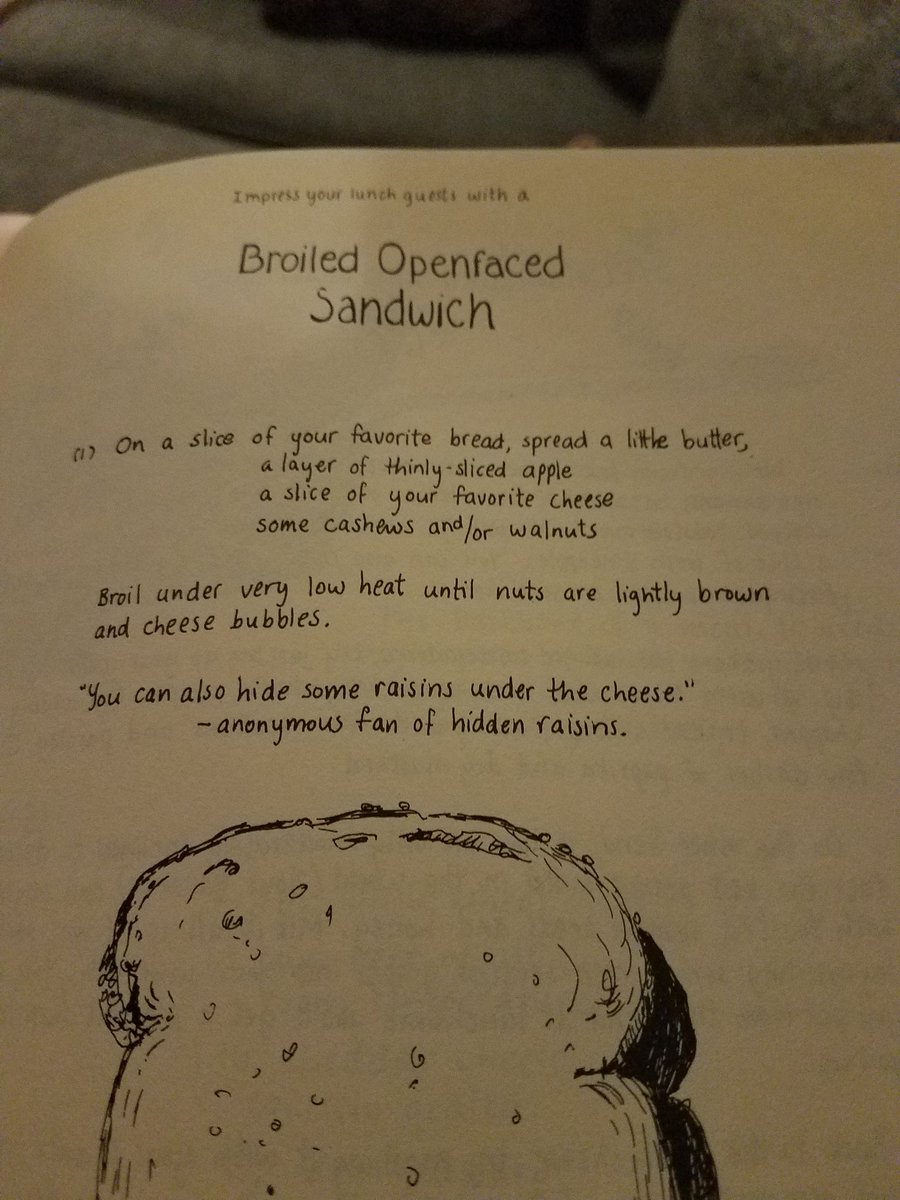 Impress your lunch guests with a
Broiled Openfaced
Sandwich
(1) On a slice of your favorite bread, spread a little butter,
a layer of thinly-sliced apple
a slice of your favorite cheese
some cashews and/or walnuts
Broil under very low heat until nuts are lightly brown
and cheese bubbles.
"You can also hide some raisins under the cheese."
~anonymous fan of hidden raisins.